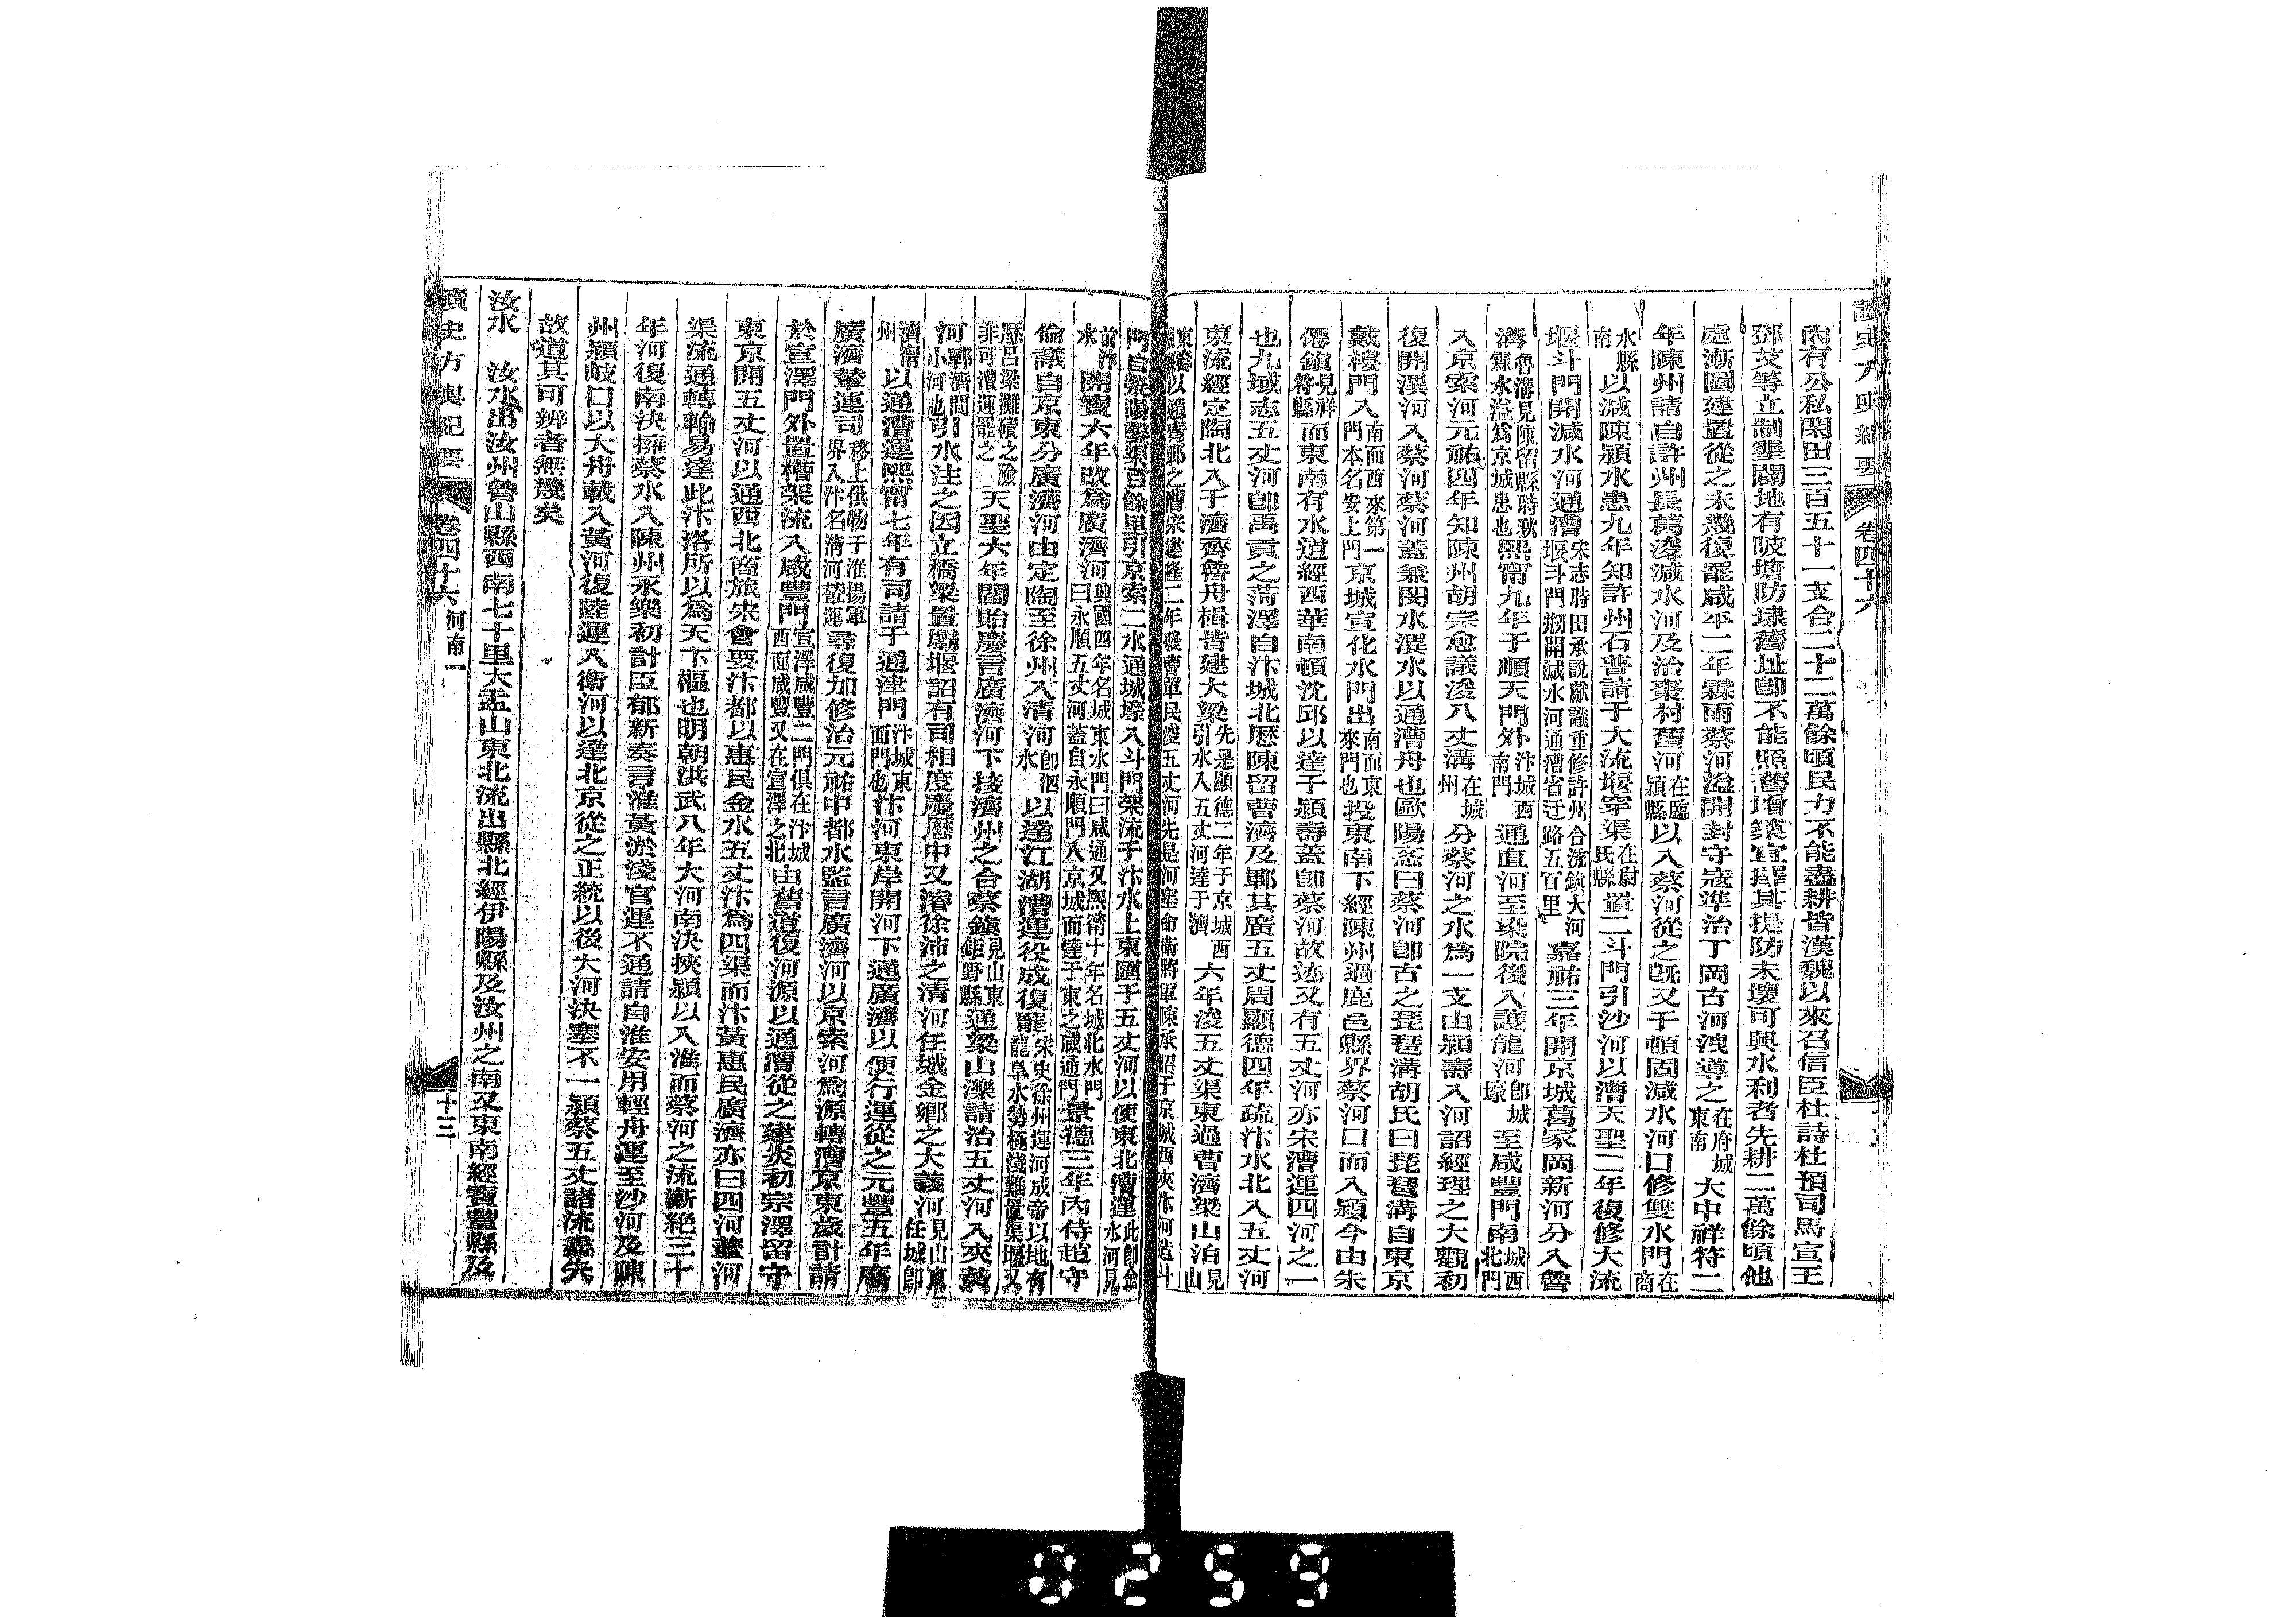 讀史方輿紀要 卷四十六
內有公私閑田三百五十一支合二十二萬餘頃民力不能盡耕皆漢魏以來召信臣杜詩杜預司馬宣王
鄧艾等立制墾闢地有陂塘防埭舊址卽不能照舊增築宜擇其堤防未壞可興水利者先耕二萬餘頃他
處漸圖建置從之未幾復罷咸平二年霖雨蔡河溢開封守寇準治丁岡古河洩導之在府城東南大中祥符二
年陳州請自許州長葛浚減水河及治棗村舊河在臨潁縣以入蔡河從之旣又于頓固減水河口修雙水門在商
水縣南以減陳潁水患九年知許州石普請于大流堰穿渠在尉氏縣置二斗門引沙河以漕天聖二年復修大流
堰斗門開減水河通漕宋志時田承說獻議重修許州合流鎮大河堰斗門剏開減水河通漕省迂路五百里嘉祐三年開京城葛家岡新河分入魯
溝魯溝見陳留縣時秋霖水溢爲京城患也熙甯九年于順天門外汴城西南門通直河至染院後入護龍河卽城壕至咸豐門南城西北門
入京索河元祐四年知陳州胡宗愈議浚八丈溝在城州分蔡河之水爲一支由潁壽入河詔經理之大觀初
復開漢河入蔡河蔡河蓋兼閔水潩水以通漕舟也歐陽忞曰蔡河卽古之琵琶溝胡氏曰琵琶溝自東京
戴樓門入南面西來第一門本名安上門京城宣化水門出南面東來門也投東南下經陳州過鹿邑縣界蔡河口而入潁今由朱
僊鎮見祥符縣而東南有水道經西華南頓沈邱以達于潁壽蓋卽蔡河故迹又有五丈河亦宋漕運四河之一
也九域志五丈河卽禹貢之菏澤自汴城北歷陳留曹濟及鄆其廣五丈周顯德四年疏汴水北入五丈河
東流經定陶北入于濟齊魯舟楫皆建大梁先是顯德二年于京城西引水入五丈河達于濟六年浚五丈渠東過曹濟梁山泊見山
以通青鄆之漕宋建隆二年發曹單民浚五丈河先是河塞命衞將軍陳承昭于京城西夾汴河造斗
門自滎陽鑿渠百餘里引京索二水通城壕入斗門架流于汴水上東匯于五丈河以便東北漕運此卽金水河見
前汴水開寶六年改爲廣濟河興國四年名城東水門曰咸通又熙甯十年名城北水門曰永順五丈河蓋自永順門入京城而達于東之咸通門景德三年內侍趙守
倫議自京東分廣濟河由定陶至徐州入清河卽泗水以達江湖漕運役成復罷宋史徐州運河成帝以地有龍阜水勢極淺難置渠堰又
歷呂梁灘磧之險非可漕運罷之天聖六年閻貽慶言廣濟河下接濟州之合蔡鎮見山東鉅野縣通梁山濼請治五丈河入夾黃
河鄆濟間小河也引水注之因立橋梁置壩堰詔有司相度慶歷中又濬徐沛之清河任城金鄉之大義河見山東任城卽
濟甯州以通漕運熙甯七年有司請于通津門汴城東面門也汴河東岸開河下通廣濟以便行運從之元豐五年廢
廣濟輦運司移上供物于淮揚軍界入汴名清河輦運尋復加修治元祐中都水監言廣濟河以京索河爲源轉漕京東歲計請
於宣澤門外置槽架流入咸豐門宣澤咸豐二門俱在汴城西面咸豐又在宣澤之北由舊道復河源以通漕從之建炎初宗澤留守
東京開五丈河以通西北商旅宋會要汴都以惠民金水五丈汴爲四渠而汴黃惠民廣濟亦曰四河蓋河
渠流通轉輸易達此汴洛所以爲天下樞也明朝洪武八年大河南決挾潁以入淮而蔡河之流漸絶三十
年河復南決擁蔡水入陳州永樂初計臣郁新奏言淮黃淤淺官運不通請自淮安用輕舟運至沙河及陳
州潁岐口以大舟載入黃河復陸運入衞河以達北京從之正統以後大河決塞不一潁蔡五丈諸流盡失
故道其可辨者無幾矣
汝水 汝水出汝州魯山縣西南七十里大盂山東北流出縣北經伊陽縣及汝州之南又東南經寶豐縣及
讀史方輿紀要 卷四十六 河南一 十三
0259